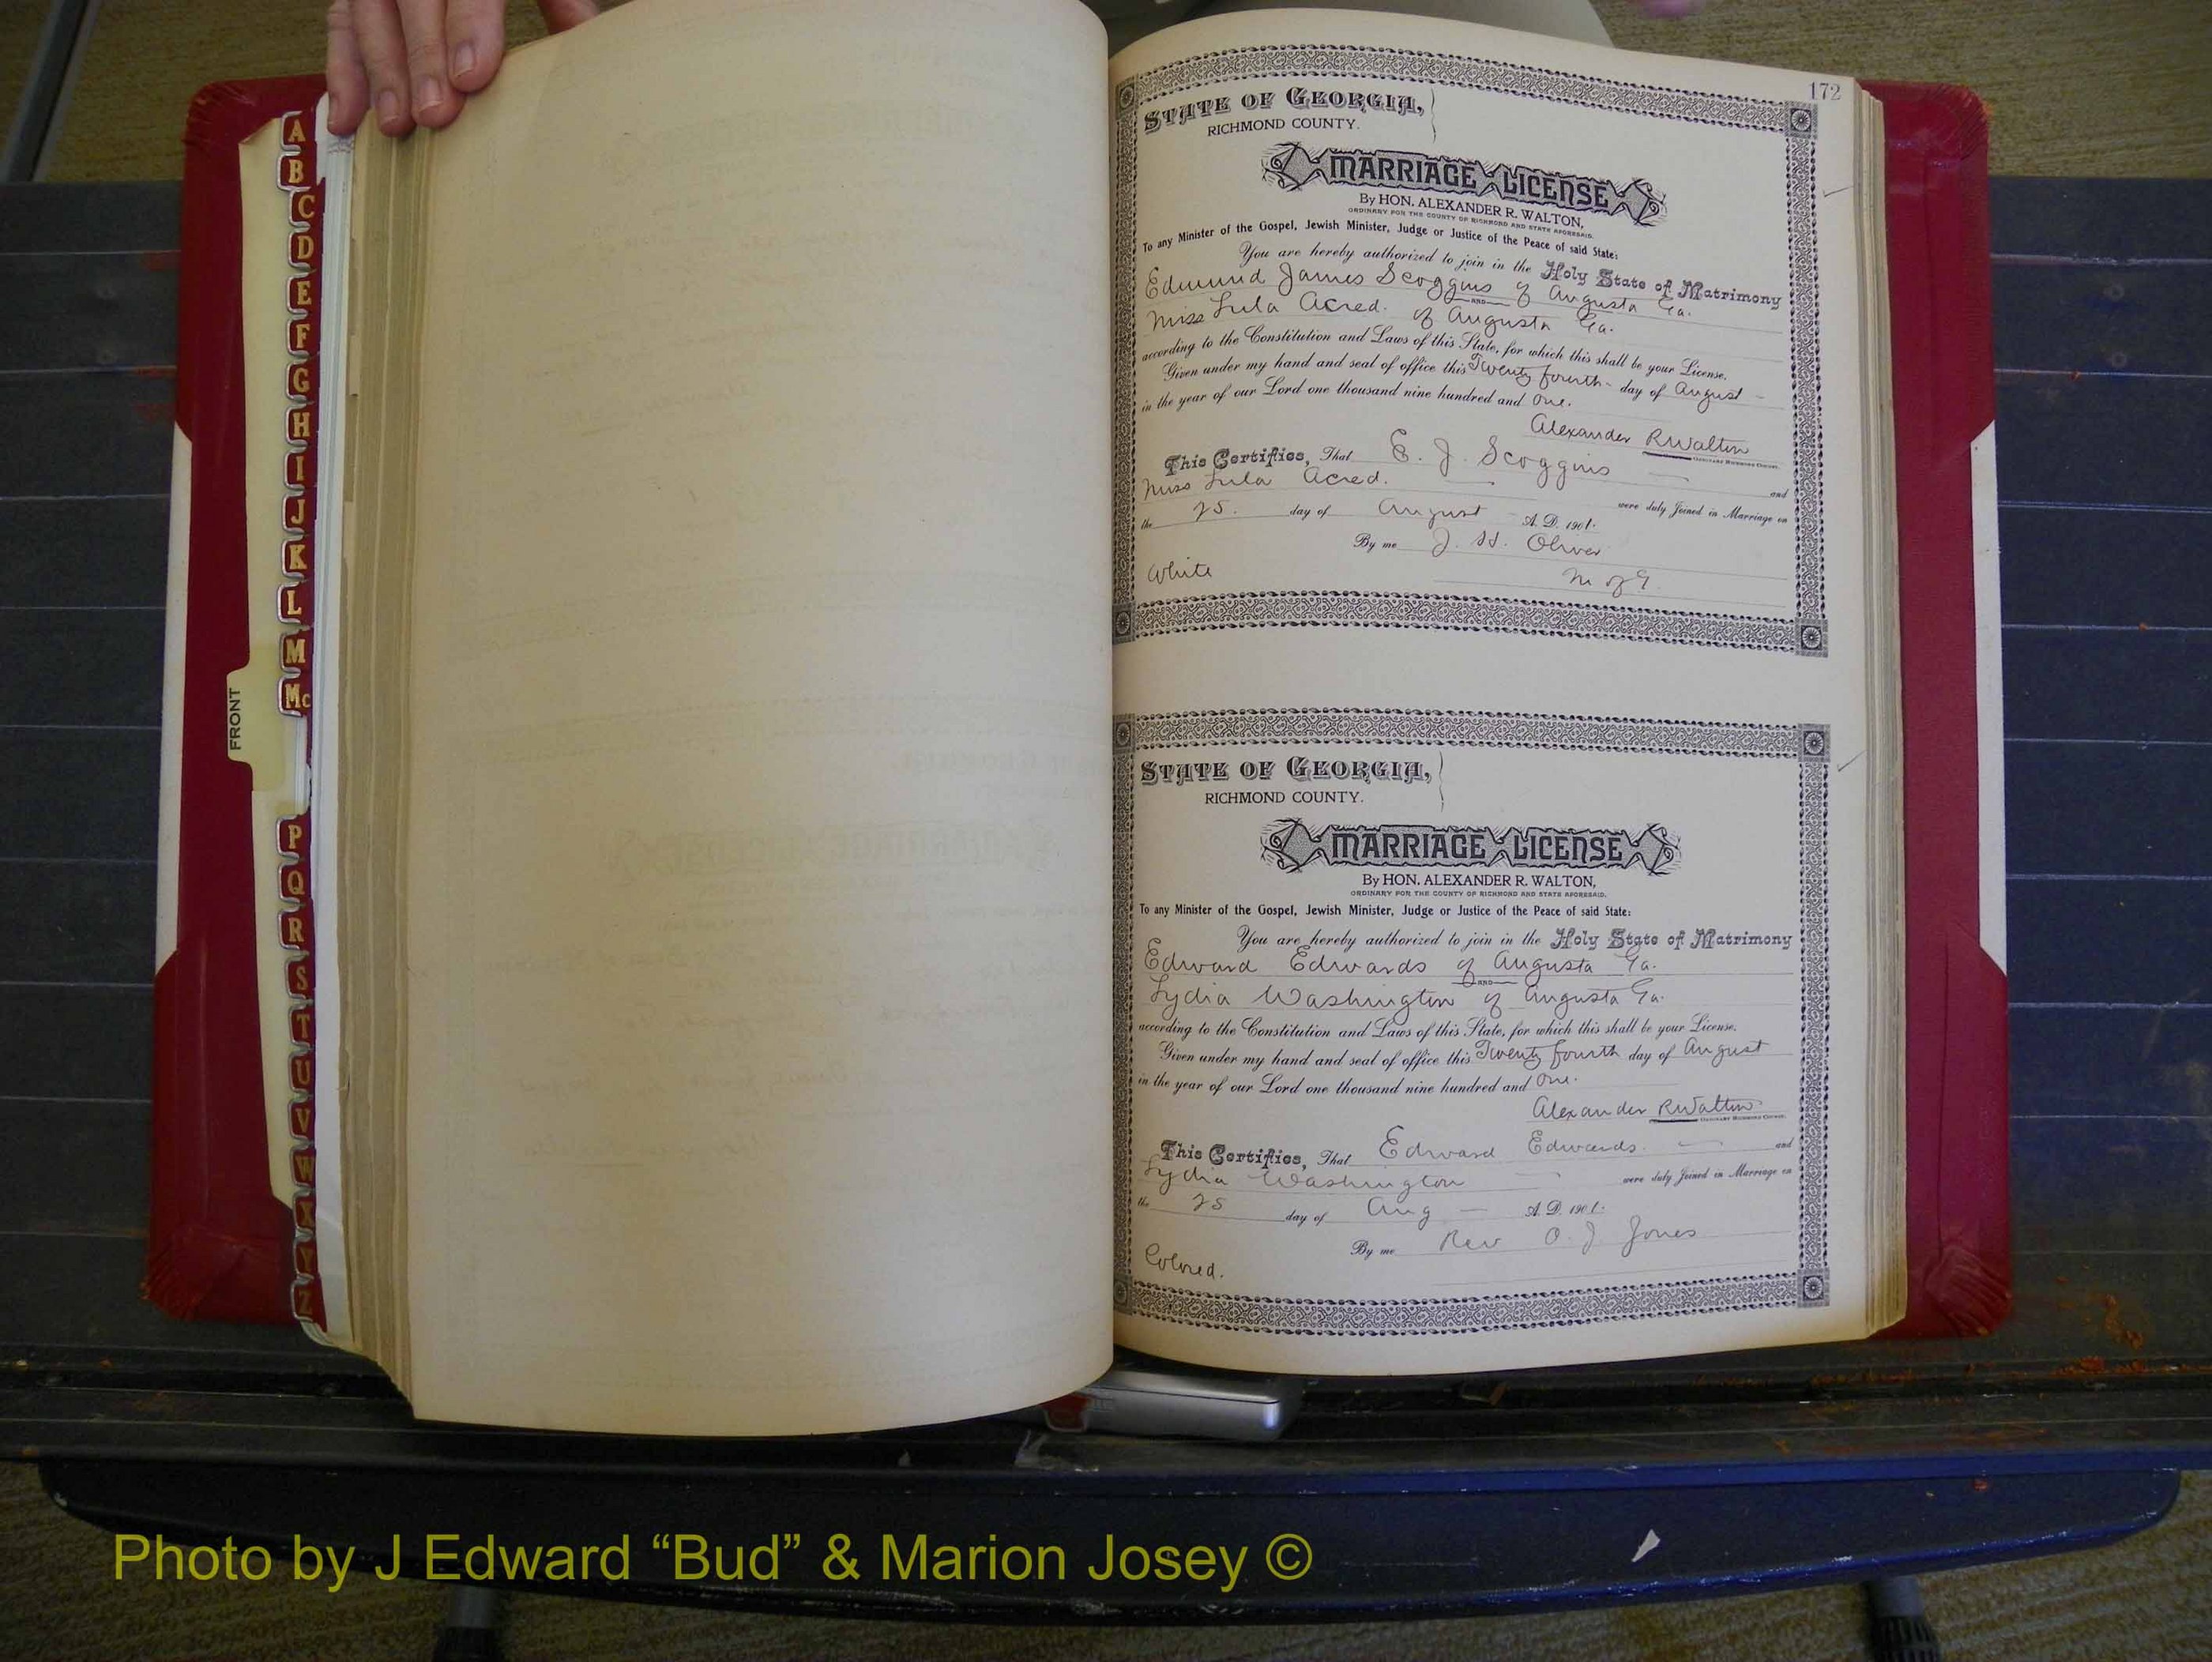 A
B
C
D
E
F
G
H
I
J
K
L
M
Mc
FRONT
P
Q
R
S
T
U
V
W
X
Y
Z
172
STATE OF GEORGIA,
RICHMOND COUNTY.
MARRIAGE LICENSE
By HON. ALEXANDER R. WALTON,
ORDINARY FOR THE COUNTY OF RICHMOND AND STATE AFORESAID.
To any Minister of the Gospel, Jewish Minister, Judge or Justice of the Peace of said State:
You are hereby authorized to join in the Holy State of Matrimony
Edmund James Scoggins of Augusta Ga.
AND
Miss Lula Acred. of Augusta Ga.
according to the Constitution and Laws of this State, for which this shall be your License.
Given under my hand and seal of office this Twenty fourth - day of August -
in the year of our Lord one thousand nine hundred and One.
Alexander R Walton
ORDINARY RICHMOND COUNTY.
This Certifies, That E. J. Scoggins and
Miss Lula Acred. were duly Joined in Marriage on
the 25. day of August - A. D. 1901.
By me J. H. Oliver
White M of G.
STATE OF GEORGIA,
RICHMOND COUNTY.
MARRIAGE LICENSE
By HON. ALEXANDER R. WALTON,
ORDINARY FOR THE COUNTY OF RICHMOND AND STATE AFORESAID.
To any Minister of the Gospel, Jewish Minister, Judge or Justice of the Peace of said State:
You are hereby authorized to join in the Holy State of Matrimony
Edward Edwards of Augusta Ga.
AND
Lydia Washington of Augusta Ga.
according to the Constitution and Laws of this State, for which this shall be your License.
Given under my hand and seal of office this Twenty fourth day of August
in the year of our Lord one thousand nine hundred and One.
Alexander R Walton
ORDINARY RICHMOND COUNTY.
This Certifies, That Edward Edwards. and
Lydia Washington were duly Joined in Marriage on
the 25 day of Aug - A. D. 1901.
By me Rev O. J. Jones
Colored.
Photo by J Edward “Bud” & Marion Josey ©